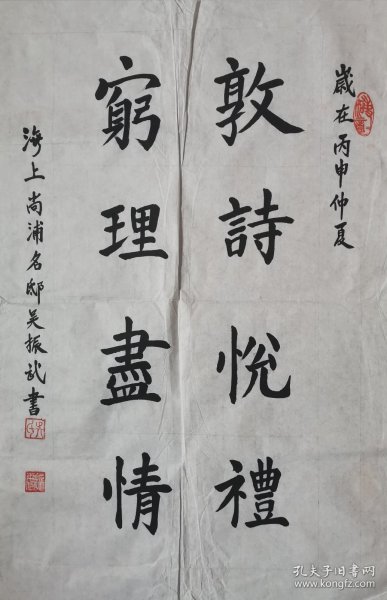 歲在丙申仲夏
敦詩悅禮
窮理盡情
海上尚浦名邸吴振武書
孔夫子旧书网
kongfz.com